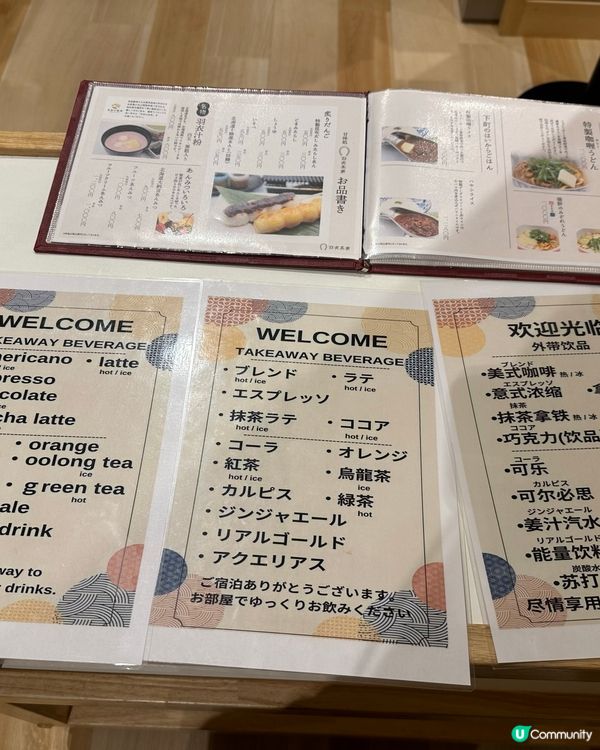 甘味処
羽衣茶寮
お品書き
炙りだんご
しょうゆ
名物
羽衣汁粉
あんみついろいろ
下町のはいからごはん
特製咖喱うどん
ハヤシライス
WELCOME
EAWAY BEVERAGE
ericano
hot / ice
・latte
hot / ice
presso
colate
cha latte
・orange
・oolong tea
ice
・green tea
hot
ale
drink
way to
drinks.
WELCOME
TAKEAWAY BEVERAGE
・ブレンド
hot / ice
・ラテ
hot / ice
・エスプレッソ
・抹茶ラテ
hot / ice
・ココア
hot / ice
・コーラ
・オレンジ
・紅茶
hot / ice
・烏龍茶
ice
・カルピス
・緑茶
hot
・ジンジャエール
・リアルゴールド
・アクエリアス
ご宿泊ありがとうございます。
お部屋でゆっくりお飲みください
欢迎光临
外带饮品
ブレンド
•美式咖啡 热 / 冰
エスプレッソ
•意式浓缩
抹茶
•抹茶拿铁 热 / 冰
ココア
•巧克力(饮品
コーラ
•可乐
カルピス
•可尔必思
ジンジャエール
•姜汁汽水
リアルゴールド
•能量饮料
炭酸水
•苏打
尽情享用
U Community